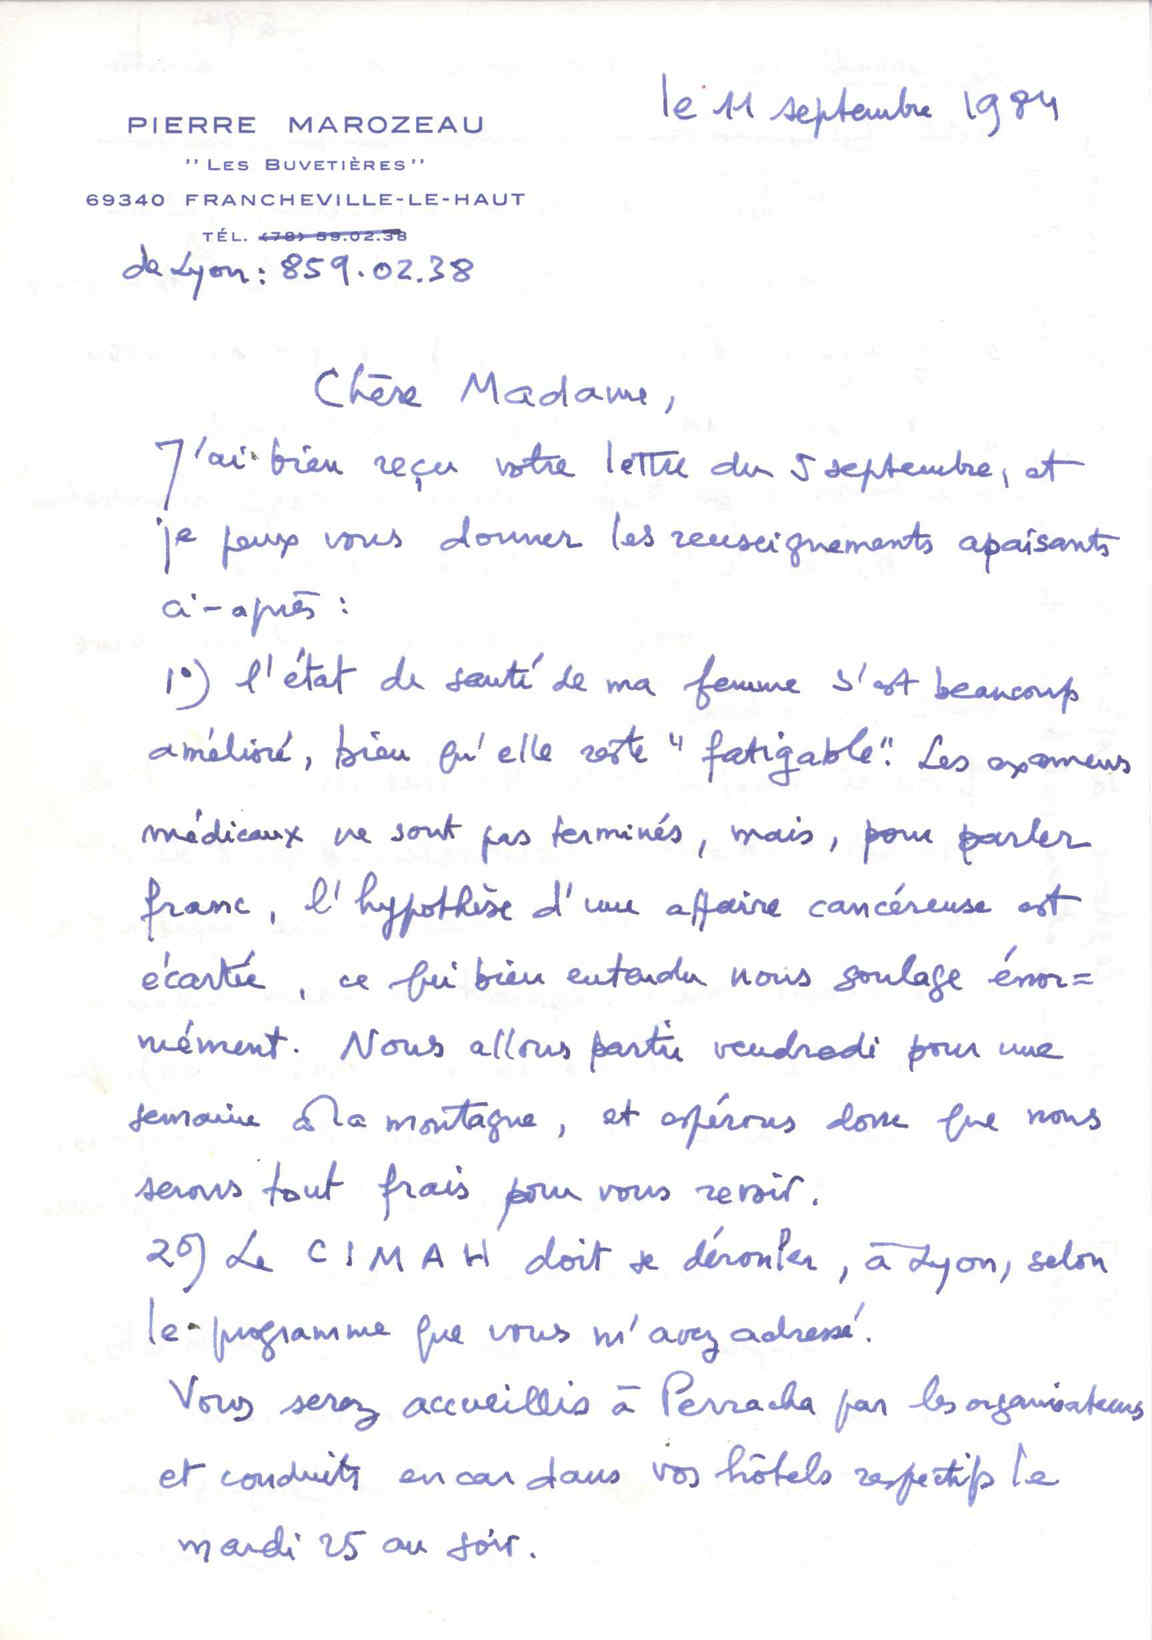 le 11 septembre 1984
PIERRE MAROZEAU
"LES BUVETIÈRES"
69340 FRANCHEVILLE-LE-HAUT
TÉL. (78) 59.02.38
de Lyon : 859.02.38
Chère Madame,
J'ai bien reçu votre lettre du 5 septembre, et
je peux vous donner les renseignements apaisants
ci-après :
1°) l'état de santé de ma femme s'est beaucoup
amélioré, bien qu'elle reste "fatigable". Les examens
médicaux ne sont pas terminés, mais, pour parler
franc, l'hypothèse d'une affaire cancéreuse est
écartée, ce qui bien entendu nous soulage énor=
mément. Nous allons partir vendredi pour une
semaine à la montagne, et espérons donc que nous
serons tout frais pour vous revoir.
2°) Le CIMAH doit se dérouler, à Lyon, selon
le programme que vous m'avez adressé.
Vous serez accueillis à Perrache par les organisateurs
et conduits en car dans vos hôtels respectifs le
mardi 25 au soir.